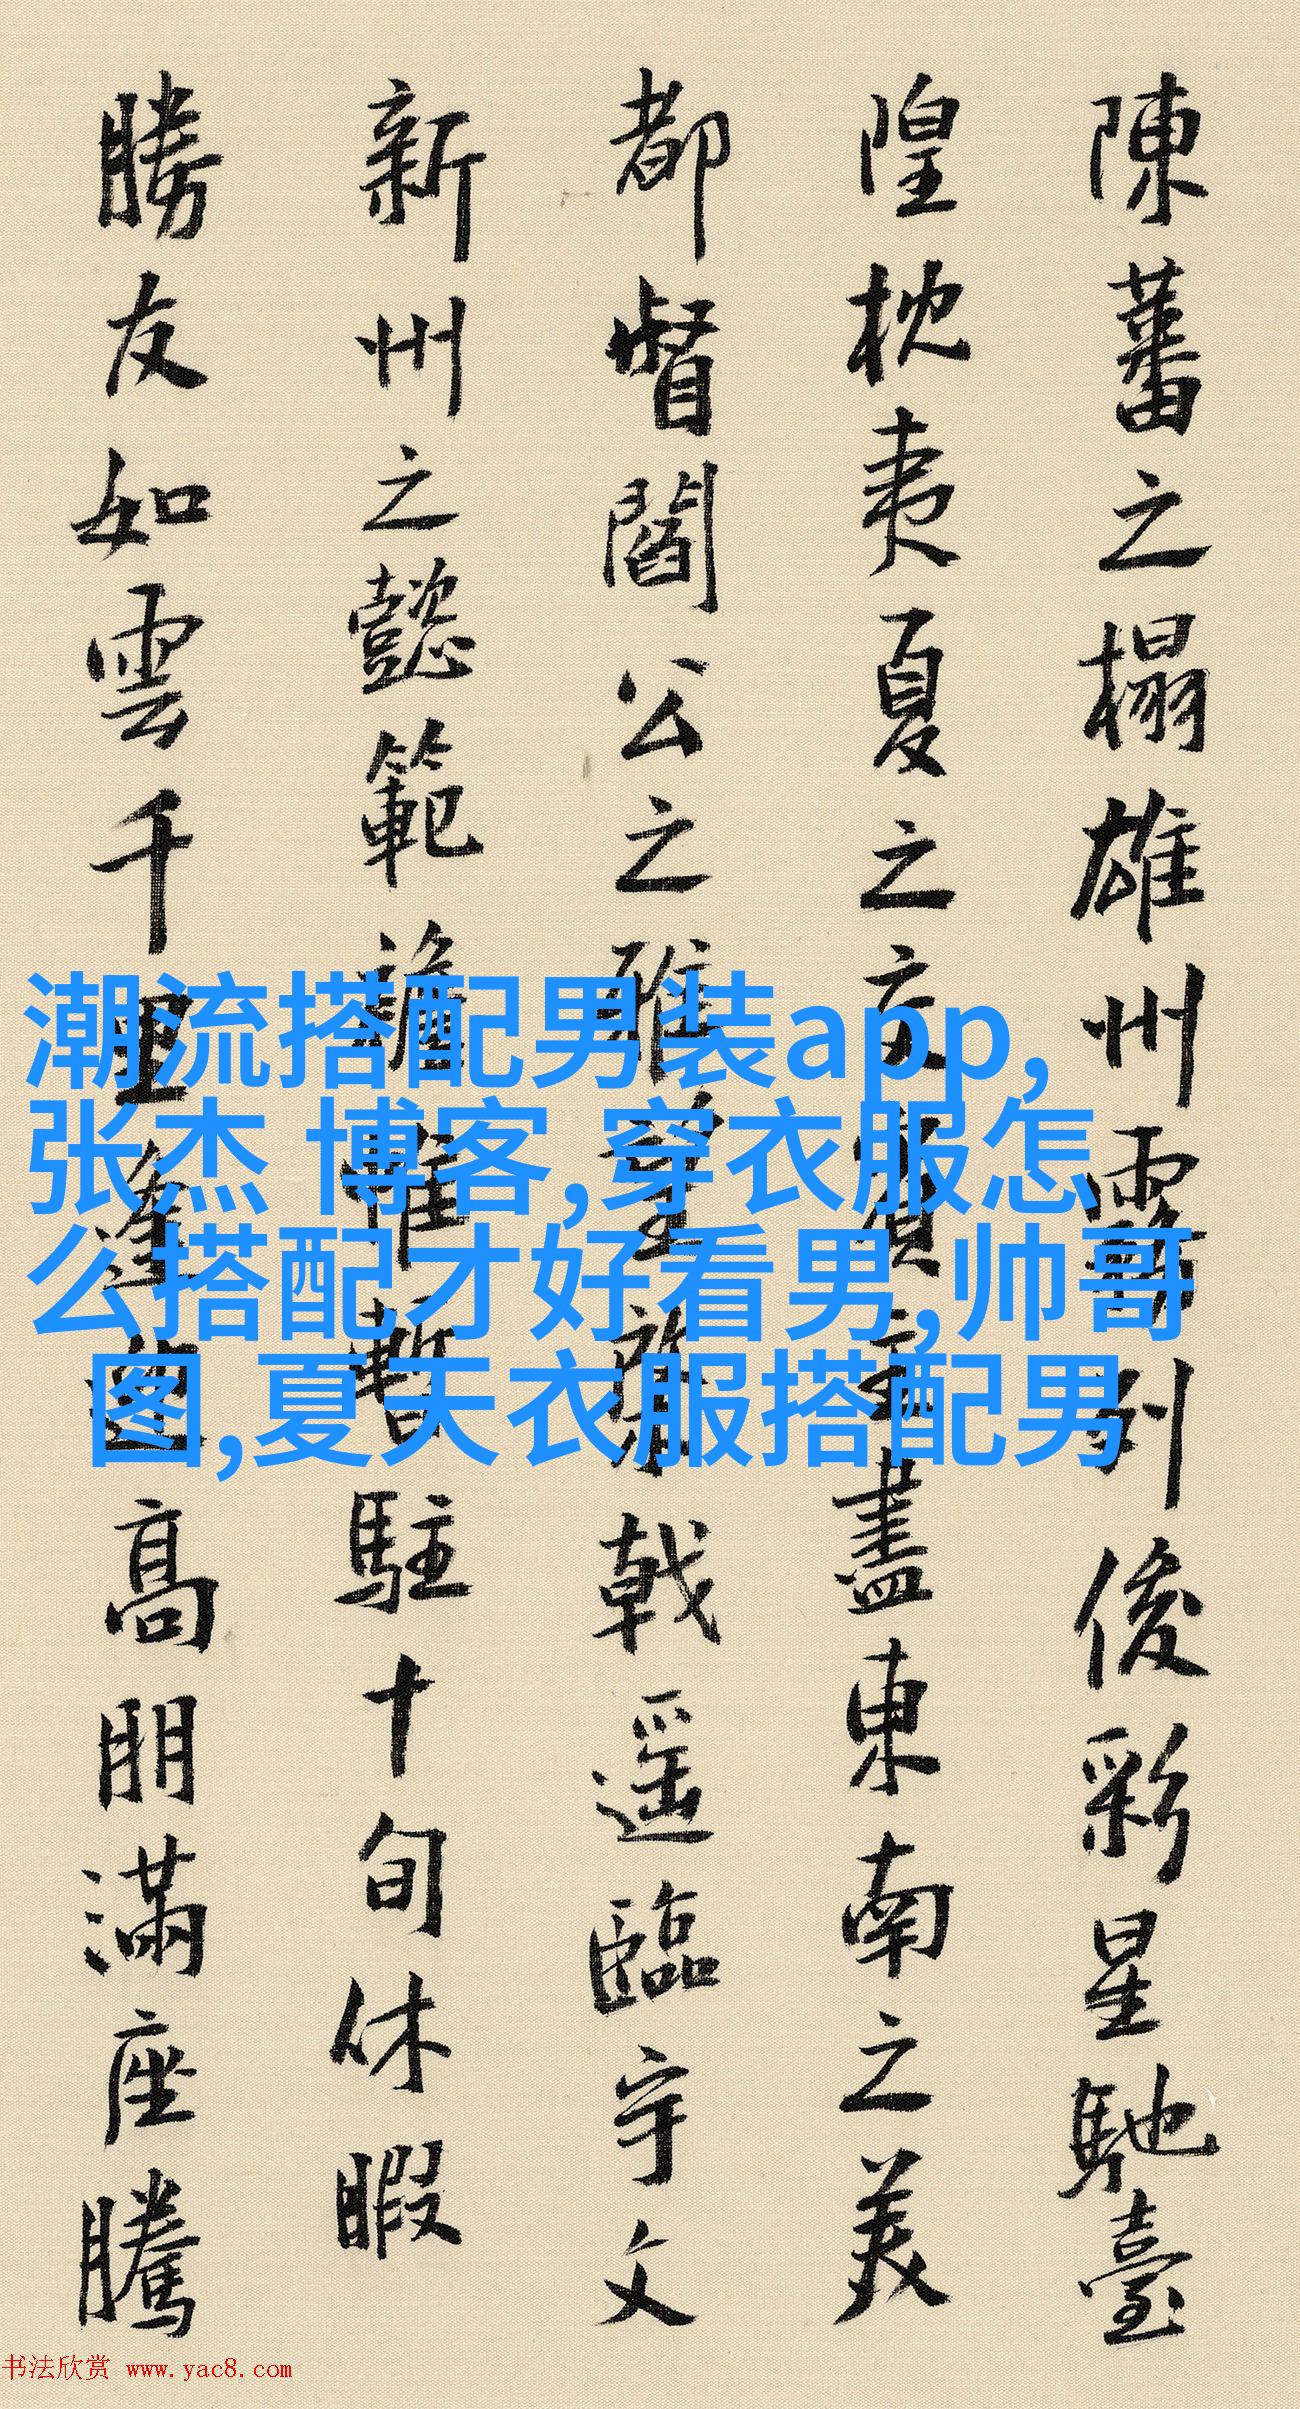 陳蕃之榻雄州霧列俊彩星馳臺
隍枕夷夏之交賓主盡東南之美
都督閻公之雅望棨戟遥臨宇文
新州之懿範襜帷暫駐十旬休暇
勝友如雲千里逢迎高朋滿座騰
潮流搭配男装app,
张杰 博客,穿衣服怎
么搭配才好看男,帅哥
图,夏天衣服搭配男
书法欣赏 www.yac8.com